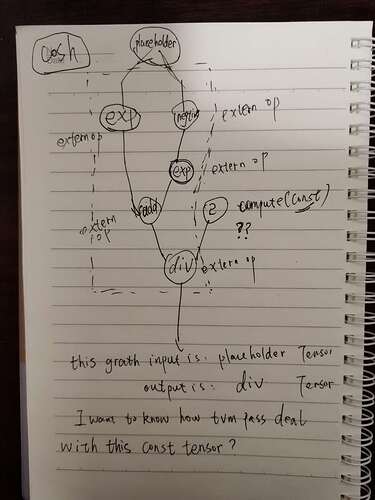 cosh
placeholder
exp
negative
extern op
extern op
exp
extern op
extern op
add
2
compute(const)
??
div
extern op
this graph input is: placeholder Tensor
output is: div Tensor
I want to know how tvm pass deal
with this const tensor?